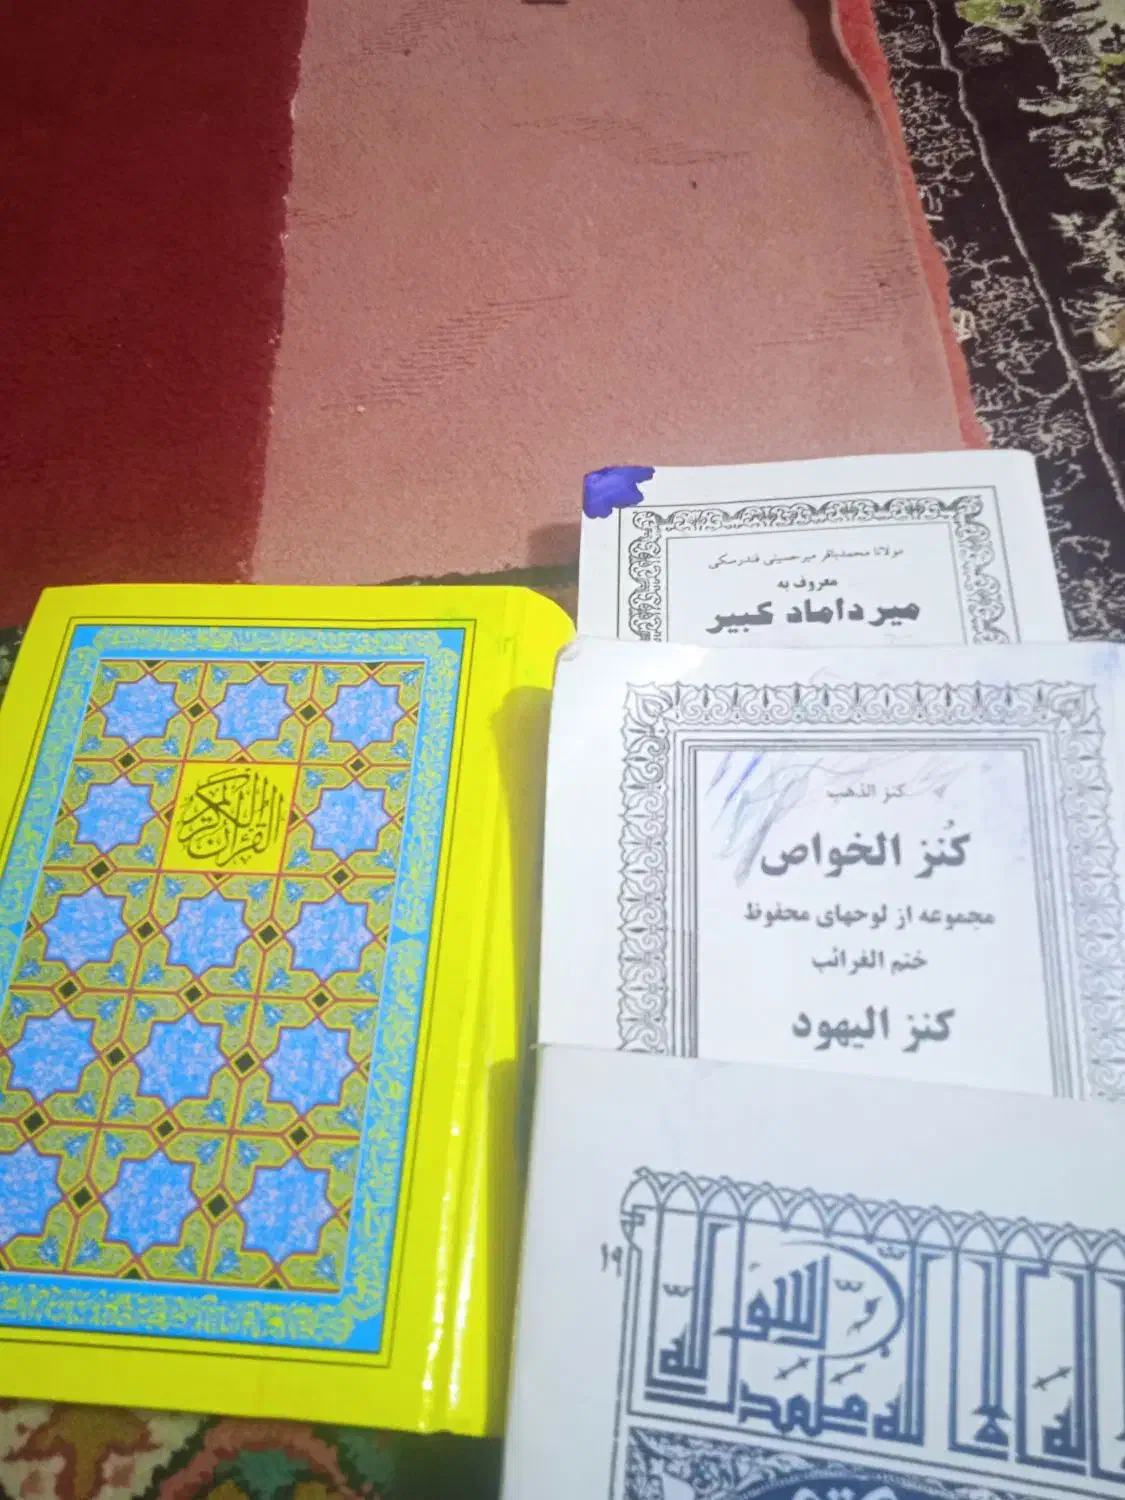 القرآن الكريم
مولانا محمدباقر میرحسینی فندرسکی
معروف به
میر داماد کبیر
کنز الذهب
کُنز الخواص
مجموعه از لوحهای محفوظ
ختم الغرائب
کنز الیهود
۱۹
محمد رسول الله